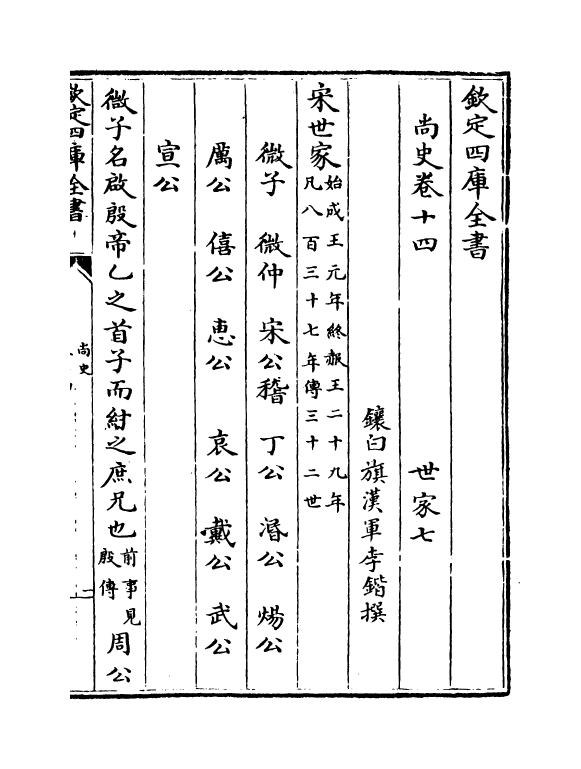 欽定四庫全書
尚史卷十四　世家七
鑲白旗漢軍李鍇撰
宋世家始成王元年終赧王二十九年
凡八百三十七年傳三十二世
微子　微仲　宋公稽　丁公　湣公　煬公
厲公　僖公　惠公　哀公　戴公　武公
宣公
微子名啟殷帝乙之首子而紂之庶兄也前事見
殷傳周公
欽定四庫全書
尚史